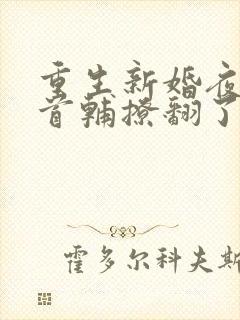 重生新婚夜
首辅撩翻了
霍多尔科夫斯